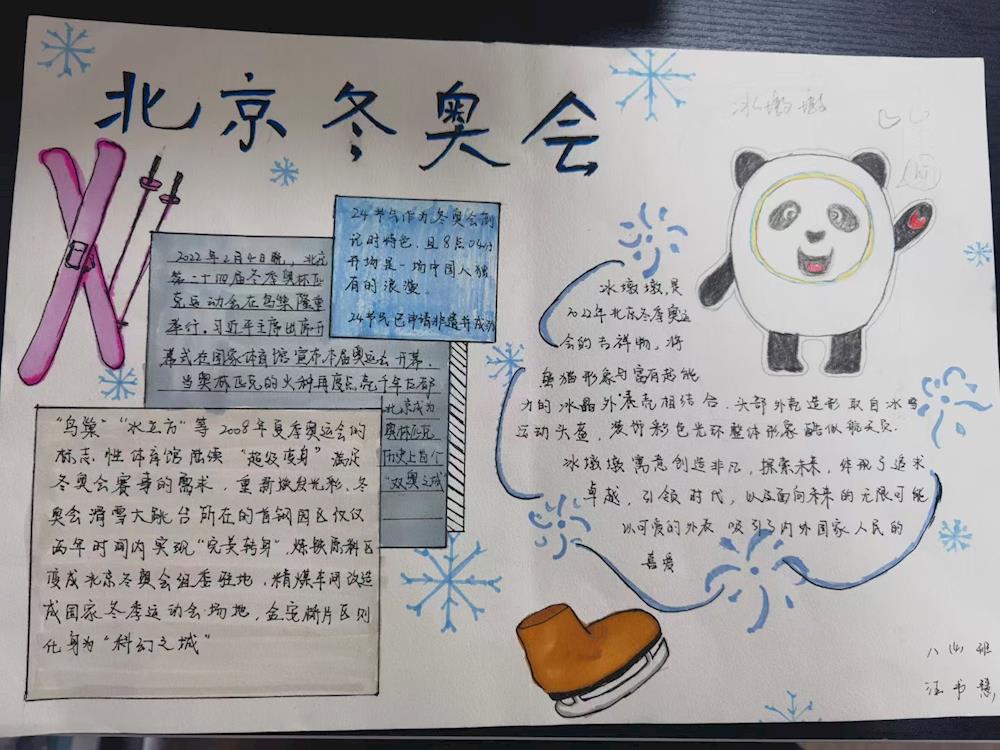 北京冬奥会
冰墩墩
24节气作为冬奥会倒
记时特色,且8点04分
开场是一场中国人独
有的浪漫.
24节气已申请非遗并成功
2022年2月4日晚,北京
第二十四届冬季奥林匹
克运动会在鸟巢隆重
举行,习近平主席出席开
幕式在国家体育馆宣布本届奥运会开幕.
当奥林匹克的火种再度点亮千年古都
北京成为
奥林匹克
历史上首个
"双奥之城
"鸟巢""水立方"等2008年夏季奥运会的
标志性体育馆陆续"超级变身"满足
冬奥会赛事的需求,重新焕发光彩.冬
奥会滑雪大跳台所在的首钢园区仅仅
两年时间内实现"完美转身".炼铁原料区
变成北京冬奥会组委驻地,精煤车间改造
成国家冬季运动会场地,
片区则
化身为"科幻之城"
冰墩墩,是
2022年北京冬季奥运
会的吉祥物,将
熊猫形象与富有超能
力的冰晶外表壳相结合,头部外壳造形取自冰雪
运动头盔,装饰彩色光环整体形象酷似航天员.
冰墩墩寓意创造非凡,探索未来,体现了追求
卓越,引领时代,以及面向未来的无限可能
以可爱的外表吸引了内外国家人民的
喜爱
八(4)班
汪书慧